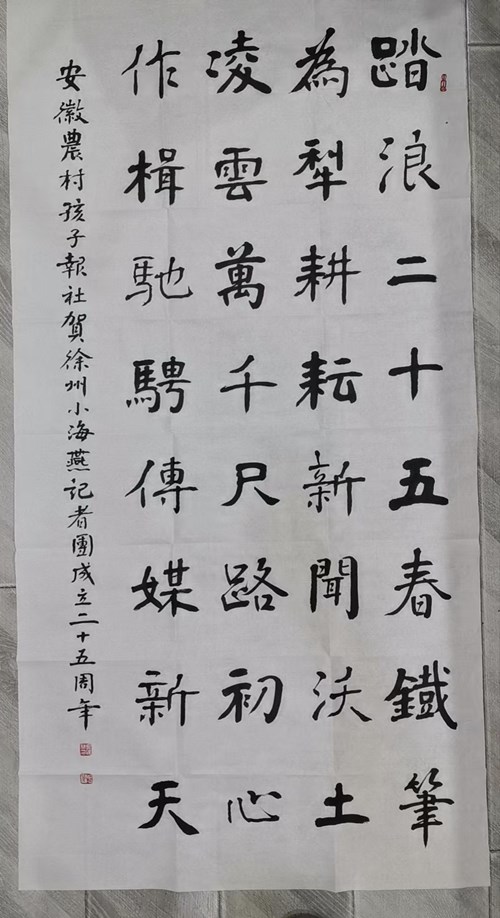 踏浪二十五春鐵筆
為犁耕耘新聞沃土
凌雲萬千尺路初心
作楫馳騁傳媒新天
安徽農村孩子報社賀徐州小海燕記者團成立二十五周年